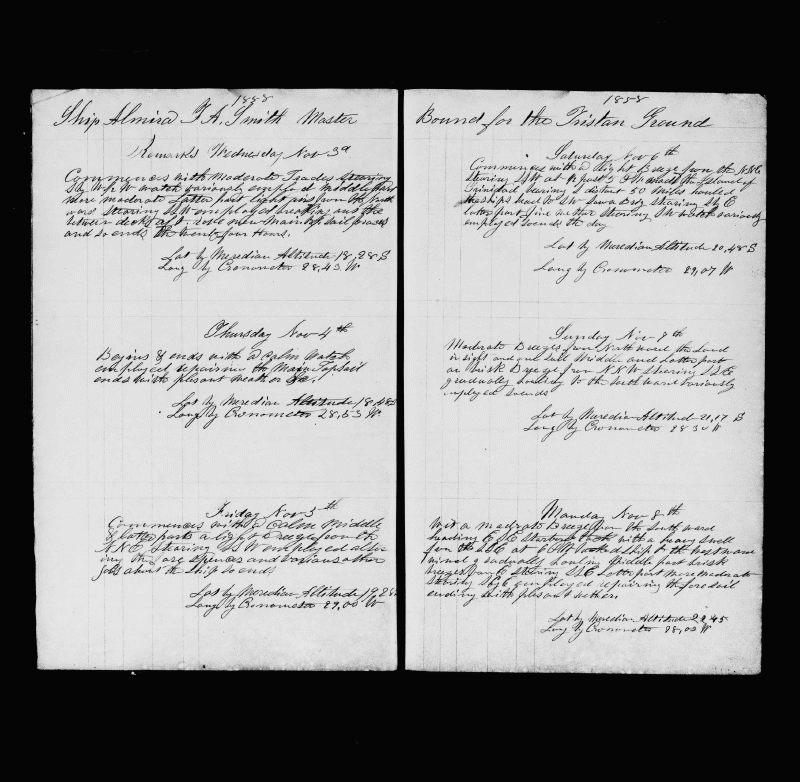 1858
Ship Almira T. A. Smith Master
Remarks Wednesday Nov 3d
Commences with Moderate Trades stearing
S by W watch variously employed Middle part
more moderate latter part light airs from the
ward stearing SSW employed breaking out the
between decks aft rove new Maintopsail braces
and so ends the twenty four Hours.
Lat by Meredian Altitude 18,28 S
Long by Cronometer 28,43 W
Thursday Nov 4th
Begins & ends with a Calm Watch
employed repairing the Main Topsail
ends with plesant weather
Lat by Meredian Altitude 18,48 S
Long by Cronometer 28,53 W
Friday Nov 5th
Commences with a Calm Middle
& latter parts a light Breeze from the
NNE stearing SSW employed
ing the fore spencer and various other
jobs about the ship so ends
Lat by Meredian Altitude 19,26
Long by Cronometer 29,00 W
1858
Bound for the Tristan Ground
Saturday Nov 6th
Commences with a light Breeze from the NNE
stearing SSW at the Island of
Trinidad bearing S distant 50 Miles hauled
the ships head to SW saw a Brig stearing S & E
latter part fine wether stearing SW watch variously
employed so ends the day
Lat by Meredian Altitude 20,48 S
Long by Cronometer 29,07 W
Sunday Nov 7th
Moderate Breezes from Northward the Land
in sight and one sail Middle and Latter part
a brisk Breeze from NNW stearing SSE
gradually hauling to the Southward variously
employed so ends
Lat by Meredian Altitude 21,17 S
Long by Cronometer 28 32 W
Monday Nov 8th
With a moderate Breeze from the Southward
heading ESE starboard tack with a heavy swell
from the SSE at 6 PM tacked ship to the westward
wind gradually hauling Middle part brisk
breezes from E stearing SSE Latter part more moderate
stearing S by E employed repairing the foresail
ending with plesant wether.
Lat by Meredian Altitude 22,45
Long by Cronometer 28,00 W